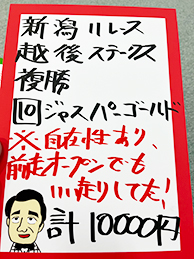 新潟11レース
越後ステークス
複勝
10ジャスパーゴールド
※自在性あり、
前走オープンでも
いい走りしてた!
計10000円